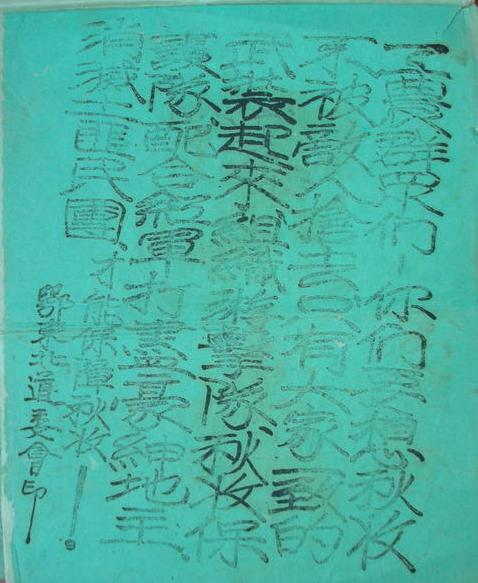 工農群眾們!你們要想秋收
不被敵人搶去只有大家一致的
武裝起來組織游擊隊秋收保
護隊,配合紅軍打盡豪紳地主
消滅土匪民團,才能保障秋收!
鄂東北道委會印